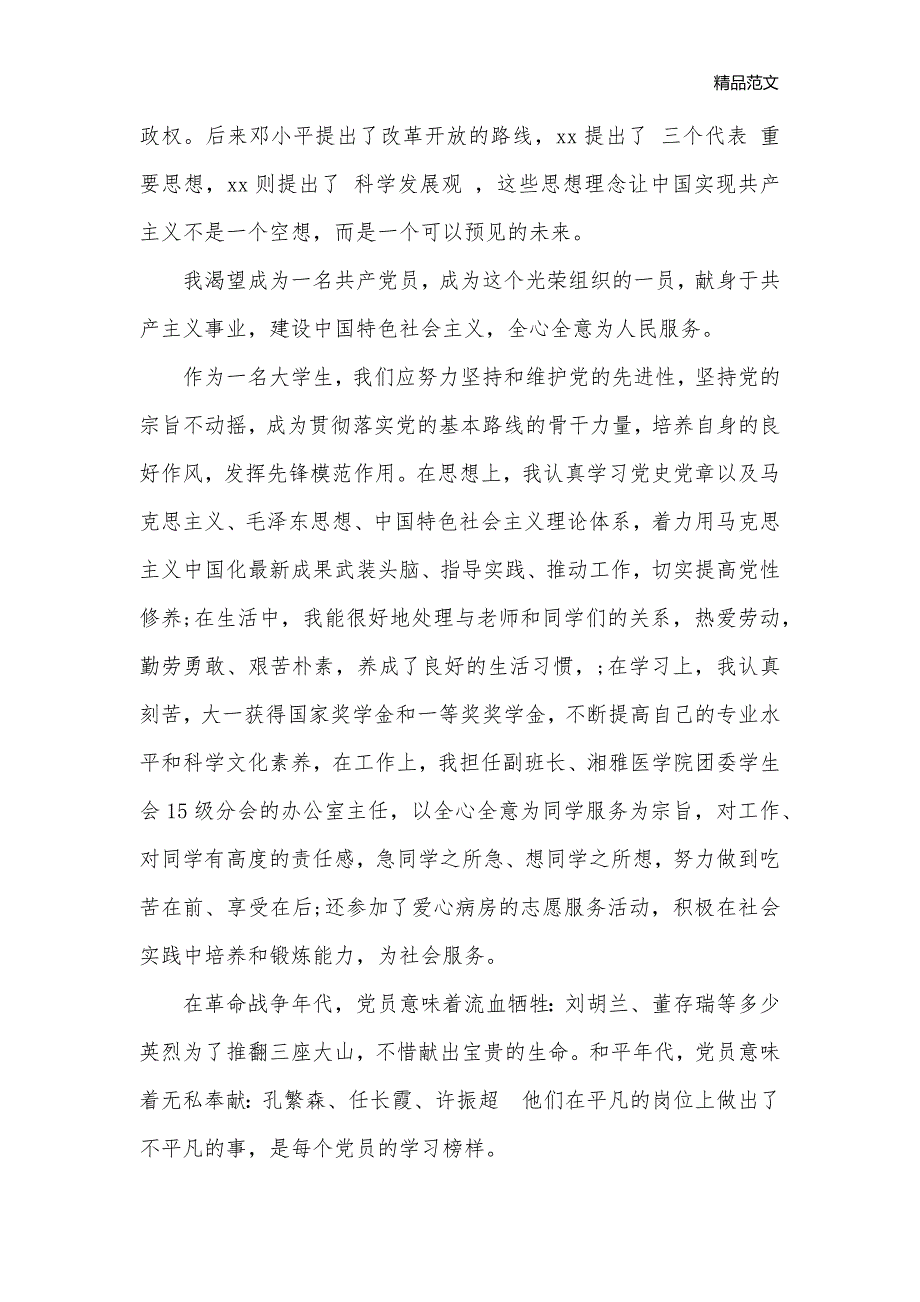 精品范文
政权。后来邓小平提出了改革开放的路线，xx 提出了 三个代表 重
要思想，xx 则提出了 科学发展观 ，这些思想理念让中国实现共产
主义不是一个空想，而是一个可以预见的未来。
我渴望成为一名共产党员，成为这个光荣组织的一员，献身于共
产主义事业，建设中国特色社会主义，全心全意为人民服务。
作为一名大学生，我们应努力坚持和维护党的先进性，坚持党的
宗旨不动摇，成为贯彻落实党的基本路线的骨干力量，培养自身的良
好作风，发挥先锋模范作用。在思想上，我认真学习党史党章以及马
克思主义、毛泽东思想、中国特色社会主义理论体系，着力用马克思
主义中国化最新成果武装头脑、指导实践、推动工作，切实提高党性
修养;在生活中，我能很好地处理与老师和同学们的关系，热爱劳动，
勤劳勇敢、艰苦朴素，养成了良好的生活习惯，;在学习上，我认真
刻苦，大一获得国家奖学金和一等奖奖学金，不断提高自己的专业水
平和科学文化素养，在工作上，我担任副班长、湘雅医学院团委学生
会 15 级分会的办公室主任，以全心全意为同学服务为宗旨，对工作、
对同学有高度的责任感，急同学之所急、想同学之所想，努力做到吃
苦在前、享受在后;还参加了爱心病房的志愿服务活动，积极在社会
实践中培养和锻炼能力，为社会服务。
在革命战争年代，党员意味着流血牺牲：刘胡兰、董存瑞等多少
英烈为了推翻三座大山，不惜献出宝贵的生命。和平年代，党员意味
着无私奉献：孔繁森、任长霞、许振超　他们在平凡的岗位上做出了
不平凡的事，是每个党员的学习榜样。